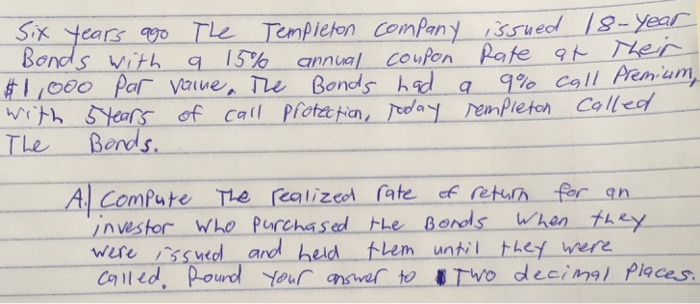 Six years ago The Templeton company issued 18-year
Bonds with a 15% annual coupon Rate at Their
$1,000 Par value. The Bonds had a 9% call Premium,
with 5 years of call protection, Today Templeton Called
The Bonds.
A.) Compute The realized rate of return for an
investor who purchased the Bonds when they
were issued and held them until they were
called. Round your answer to Two decimal places.